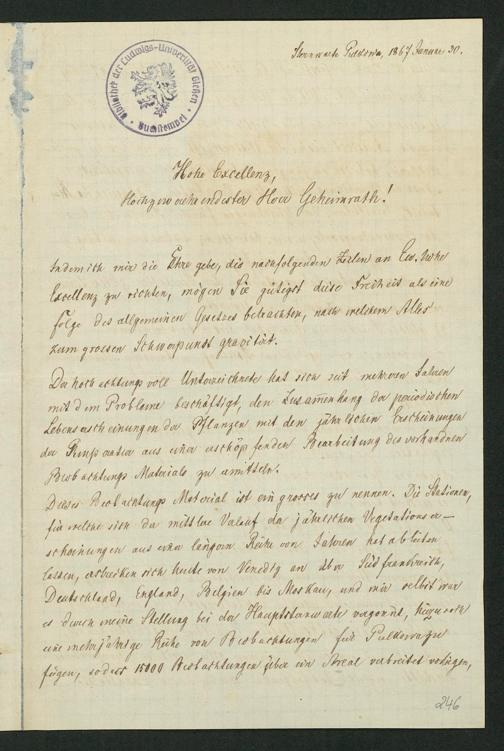 Sternwarte Pulkowa, 1867 Januar 30.
Bibliothek der Ludwigs-Universität Gießen
Buchstempel
Hohe Excellenz,
Hochzuverehrendester Herr Geheimrath!
Indem ich mir die Ehre gebe, die nachfolgenden Zeilen an Ew. Hohe
Excellenz zu richten, mögen Sie gütigst diese Freiheit als eine
Folge des allgemeinen Gesetzes betrachten, nach welchem Alles
zum grossen Schwerpunkt gravitirt.
Der hochachtungsvoll Unterzeichnete hat sich seit mehreren Jahren
mit dem Probleme beschäftigt, den Zusammenhang der periodischen
Lebenserscheinungen der Pflanzen mit den jährlichen Erscheinungen
der aus einer erschöpfenden Bearbeitung des vorhandnen
Beobachtungs Materials zu ermitteln.
Dieses Beobachtungs Material ist ein grosses zu nennen. Die Stationen,
für welche sich der mittlere Verlauf der jährlichen Vegetationser-
scheinungen aus einer längern Reihe von Jahren hat ableiten
lassen, erstrecken sich heute von Venedig an über Südfrankreich,
Deutschland, England, Belgien bis Moskau, und mir selbst war
es durch meine Stellung bei der Hauptsternwarte vergönnt, hierzu noch
eine mehrjährige Reihe von Beobachtungen für Pulkowa zu
fügen, sodass 15000 Beobachtungen über ein Areal verbreitet vorliegen,
246